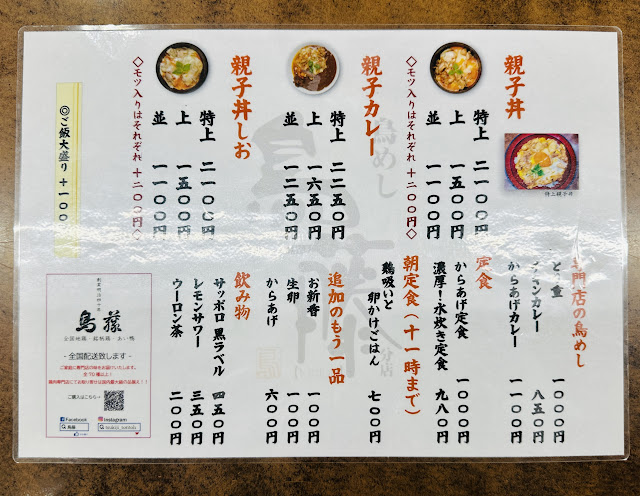 親子丼
特上 二一〇〇円
上 一五〇〇円
並 一一〇〇円
◇モツ入りはそれぞれ+二〇〇円◇
特上親子丼
親子カレー
特上 二二五〇円
上 一六五〇円
並 一二五〇円
親子丼しお
特上 二一〇〇円
上 一五〇〇円
並 一一〇〇円
◇モツ入りはそれぞれ+二〇〇円◇
◎ご飯大盛り+100
専門店の鳥めし
重 一〇〇〇円
カレー 八五〇円
からあげカレー 一一〇〇円
定食
からあげ定食 一〇〇〇円
濃厚!水炊き定食 九八〇円
朝定食(十一時まで)
鶏吸いと
卵かけごはん 七〇〇円
追加のもう一品
お新香 一〇〇円
生卵 一〇〇円
からあげ 六〇〇円
飲み物
サッポロ黒ラベル 四五〇円
レモンサワー 三五〇円
ウーロン茶 二〇〇円
鳥めし
鳥藤
分店
創業明治四十年
鳥藤
全国地鶏・銘柄鶏・あい鴨
- 全国配送致します -
ご家庭に専門店の味をお届けいたします。
ご購入はこちら→
Facebook
鳥藤
Instagram